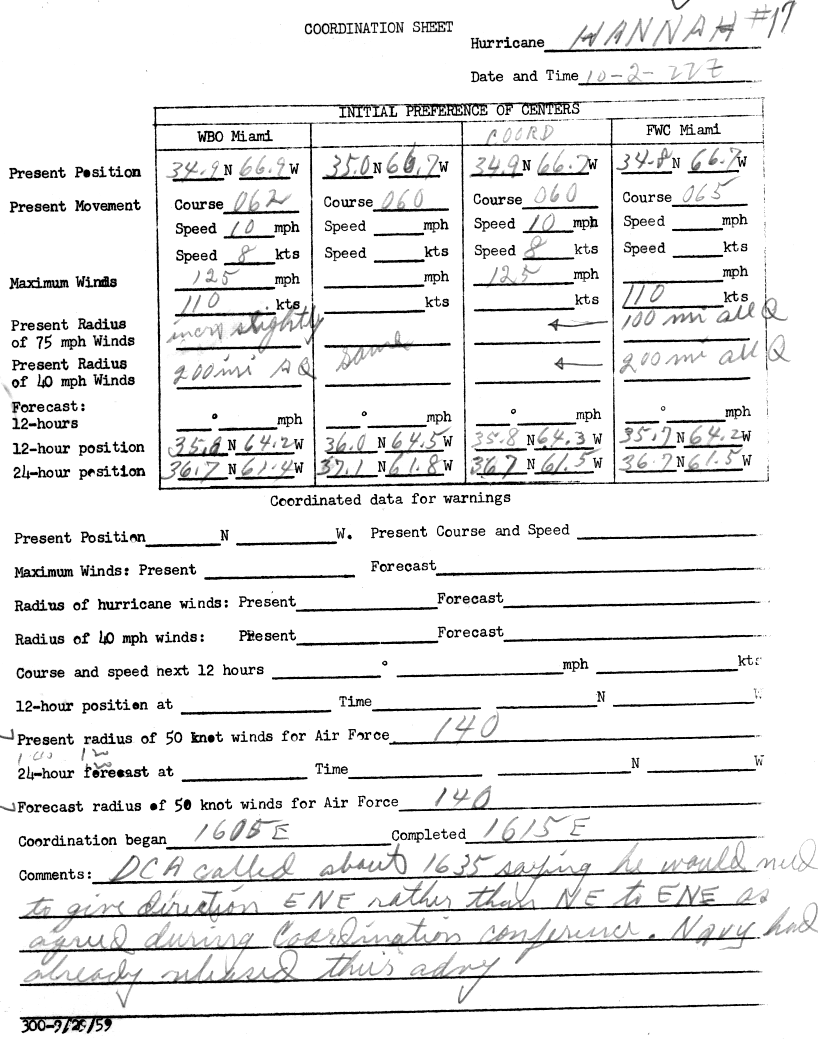 COORDINATION SHEET
Hurricane HANNAH #17
Date and Time 10-2-22Z
INITIAL PREFERENCE OF CENTERS
WBO Miami COORD FWC Miami
Present Position 34.9 N 66.9 W 35.0 N 66.7 W 34.9 N 66.7 W 34.8 N 66.7 W
Present Movement Course 062 Course 060 Course 060 Course 065
Speed 10 mph Speed mph Speed 10 mph Speed mph
Speed 8 kts Speed kts Speed 8 kts Speed kts
Maximum Winds 125 mph mph 125 mph mph
110 kts kts kts 110 kts
Present Radius of 75 mph Winds incrs slightly ← 100 mi all Q
Present Radius of 40 mph Winds 200 mi A Q same ← 200 mi all Q
Forecast:
12-hours ° mph ° mph ° mph ° mph
12-hour position 35.8 N 64.2 W 36.0 N 64.5 W 35.8 N 64.3 W 35.7 N 64.2 W
24-hour position 36.7 N 61.4 W 37.1 N 61.8 W 36.7 N 61.5 W 36.7 N 61.5 W
Coordinated data for warnings
Present Position N W. Present Course and Speed
Maximum Winds: Present Forecast
Radius of hurricane winds: Present Forecast
Radius of 40 mph winds: Present Forecast
Course and speed next 12 hours ° mph kts
12-hour position at Time N W
Present radius of 50 knot winds for Air Force 140
24-hour forecast at Time N W
Forecast radius of 50 knot winds for Air Force 140
Coordination began 1605 E Completed 1615 E
Comments: DCA called about 1635 saying he would need
to give direction ENE rather than NE to ENE as
agreed during Coordination conference. Navy had
already released this advy
300-9/29/59